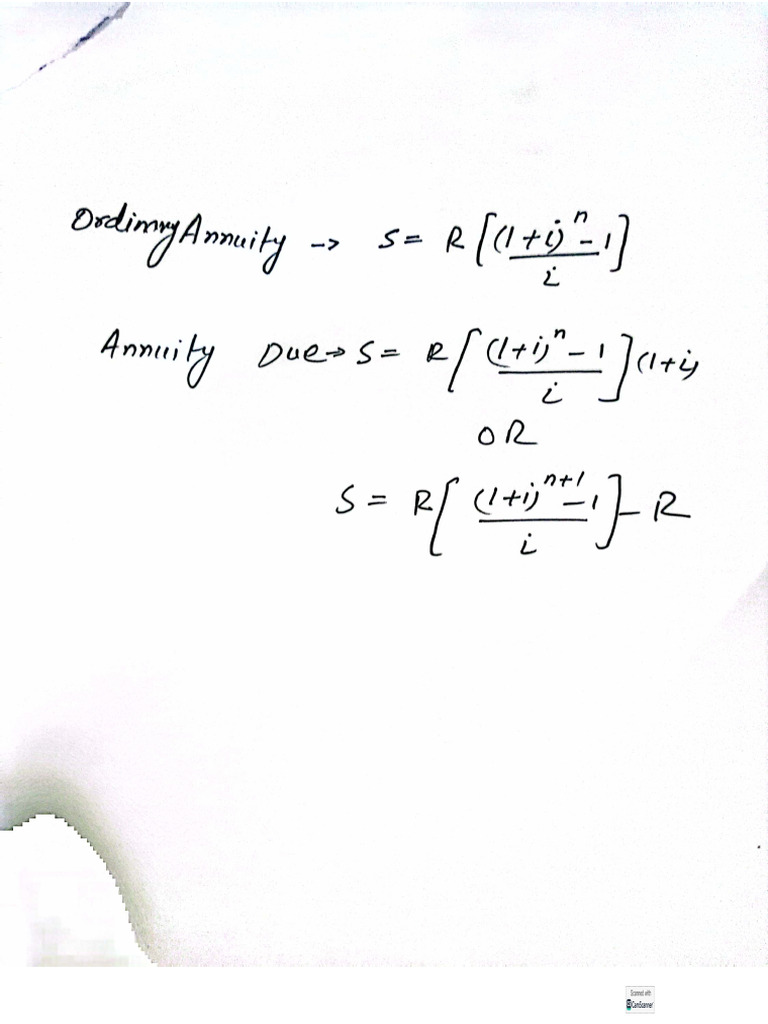 Ordinary Annuity -> S = R[((1+i)^n - 1)/i]
Annuity Due -> S = R[((1+i)^n - 1)/i](1+i)
OR
S = R[((1+i)^(n+1) - 1)/i] - R
Scanned with
CamScanner